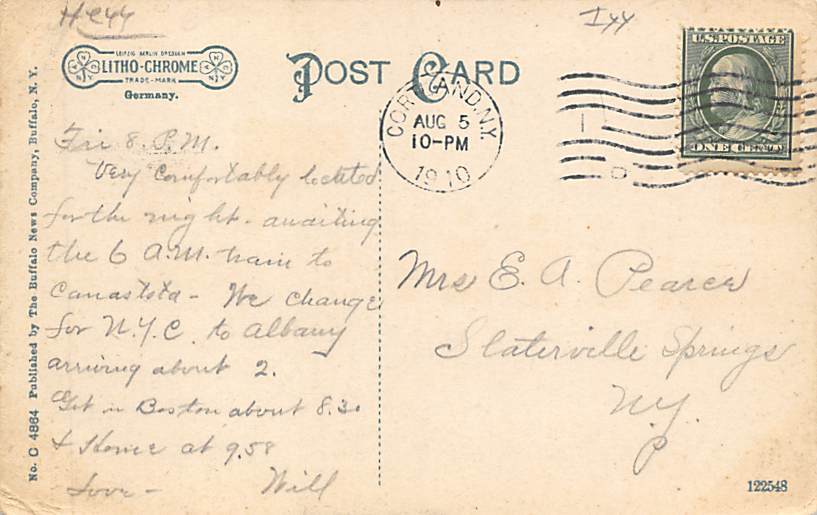 Hc44
I44
LEIPZIG BERLIN DRESDEN
LITHO-CHROME
TRADE-MARK
Germany.
POST CARD
CORTLAND, N.Y.
AUG 5
10-PM
1910
U.S. POSTAGE
ONE CENT
Fri 8. P.M.
Very comfortably located
for the night. awaiting
the 6 A.M. train to
Canastota - We change
for N.Y.C. to Albany
arriving about 2.
Get in Boston about 8.30
& Home at 9.58
Love - Will
Mrs E. A. Pearce
Slaterville Springs
N.Y.
No. C 4864 Published by The Buffalo News Company, Buffalo, N. Y.
122548